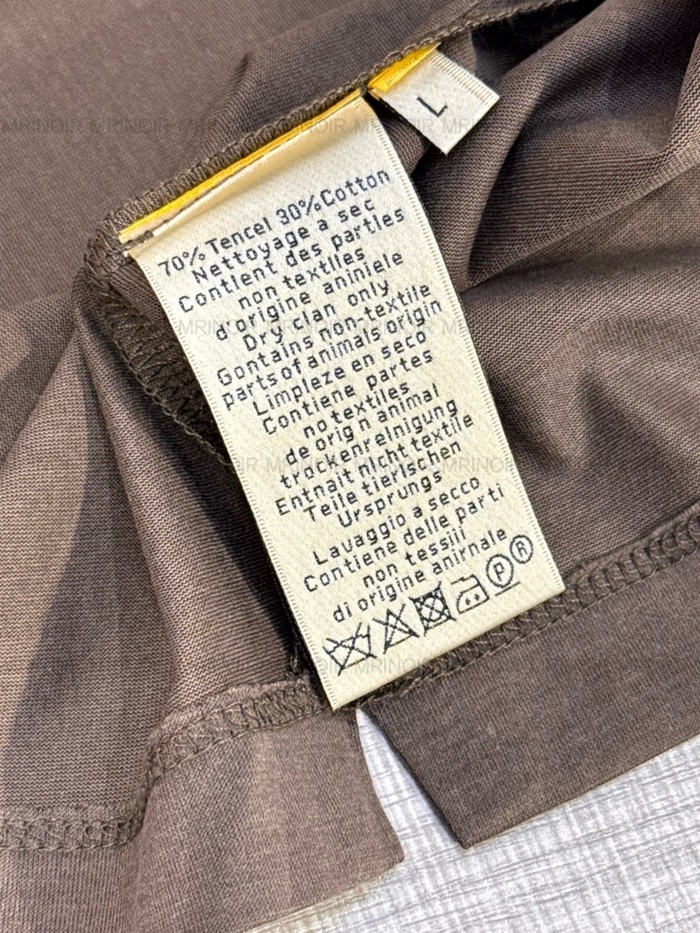 L
70% Tencel 30%Cotton
Nettoyage a sec
Contlent des partles
non textlles
d origine aniniele
Dry clan only
Gontains non-textile
parts of animals origin
Limpleze en seco
Contiene partes
no textiles
de orig n animal
trockenreinigung
Entnait nicht textile
Teile tierischen
Ursprungs
Lavaggio a secco
Contiene delle parti
non tessiii
di origine anirnale
P R
MRINOIR MRINOIR MRINOIR MRINOIR
MRINOIR MRINOIR MRINOIR
MRINOIR MRINOIR MRINOIR
MRINOIR MRINOIR MRINOIR